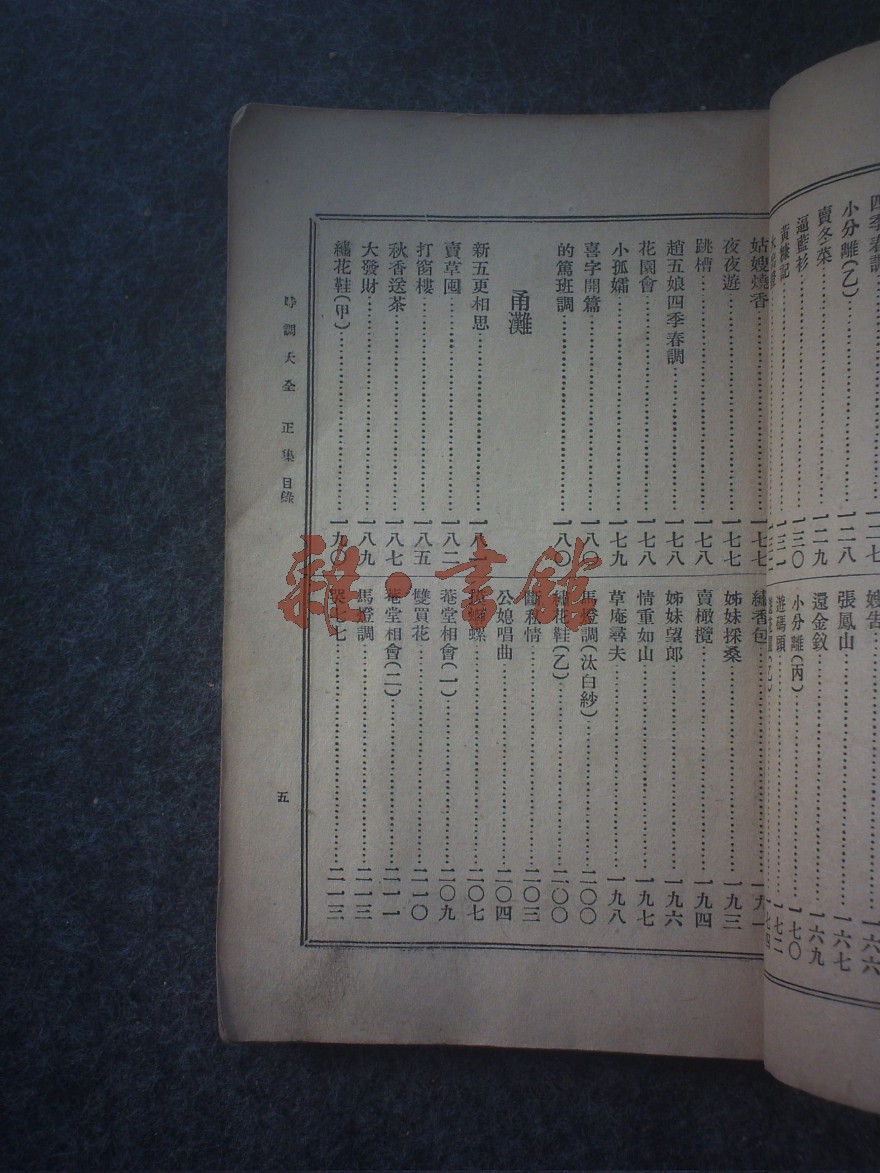 四季春調
一二七
小分離(乙)
一二八
賣冬菜
一二九
逼藍衫
一三〇
黃糠記
一三一
嫂告
一六六
張鳳山
一六七
還金釵
一六九
小分離(丙)
一七〇
遊碼頭
一七二
一七四
姑嫂燒香
一七七
夜夜遊
一七七
跳槽
一七八
趙五娘四季春調
一七八
花園會
一七八
小孤孀
一七九
喜字開篇
一八〇
的篤班調
一八〇
甬灘
新五更相思
一八一
賣草囤
一八二
打窗樓
一八五
秋香送茶
一八七
大發財
一八九
繡花鞋(甲)
一九〇
繡香包
姊妹採桑
一九三
賣橄欖
一九四
姊妹望郎
一九六
情重如山
一九七
草庵尋夫
一九八
馬燈調(汰白紗)
二〇〇
繡花鞋(乙)
二〇〇
斷私情
二〇三
公媳唱曲
二〇四
螺
二〇七
菴堂相會(一)
二〇九
雙買花
二一〇
菴堂相會(二)
二一一
馬燈調
二一三
哭七七
二一三
時調大全 正集 目錄
五
雜·書館